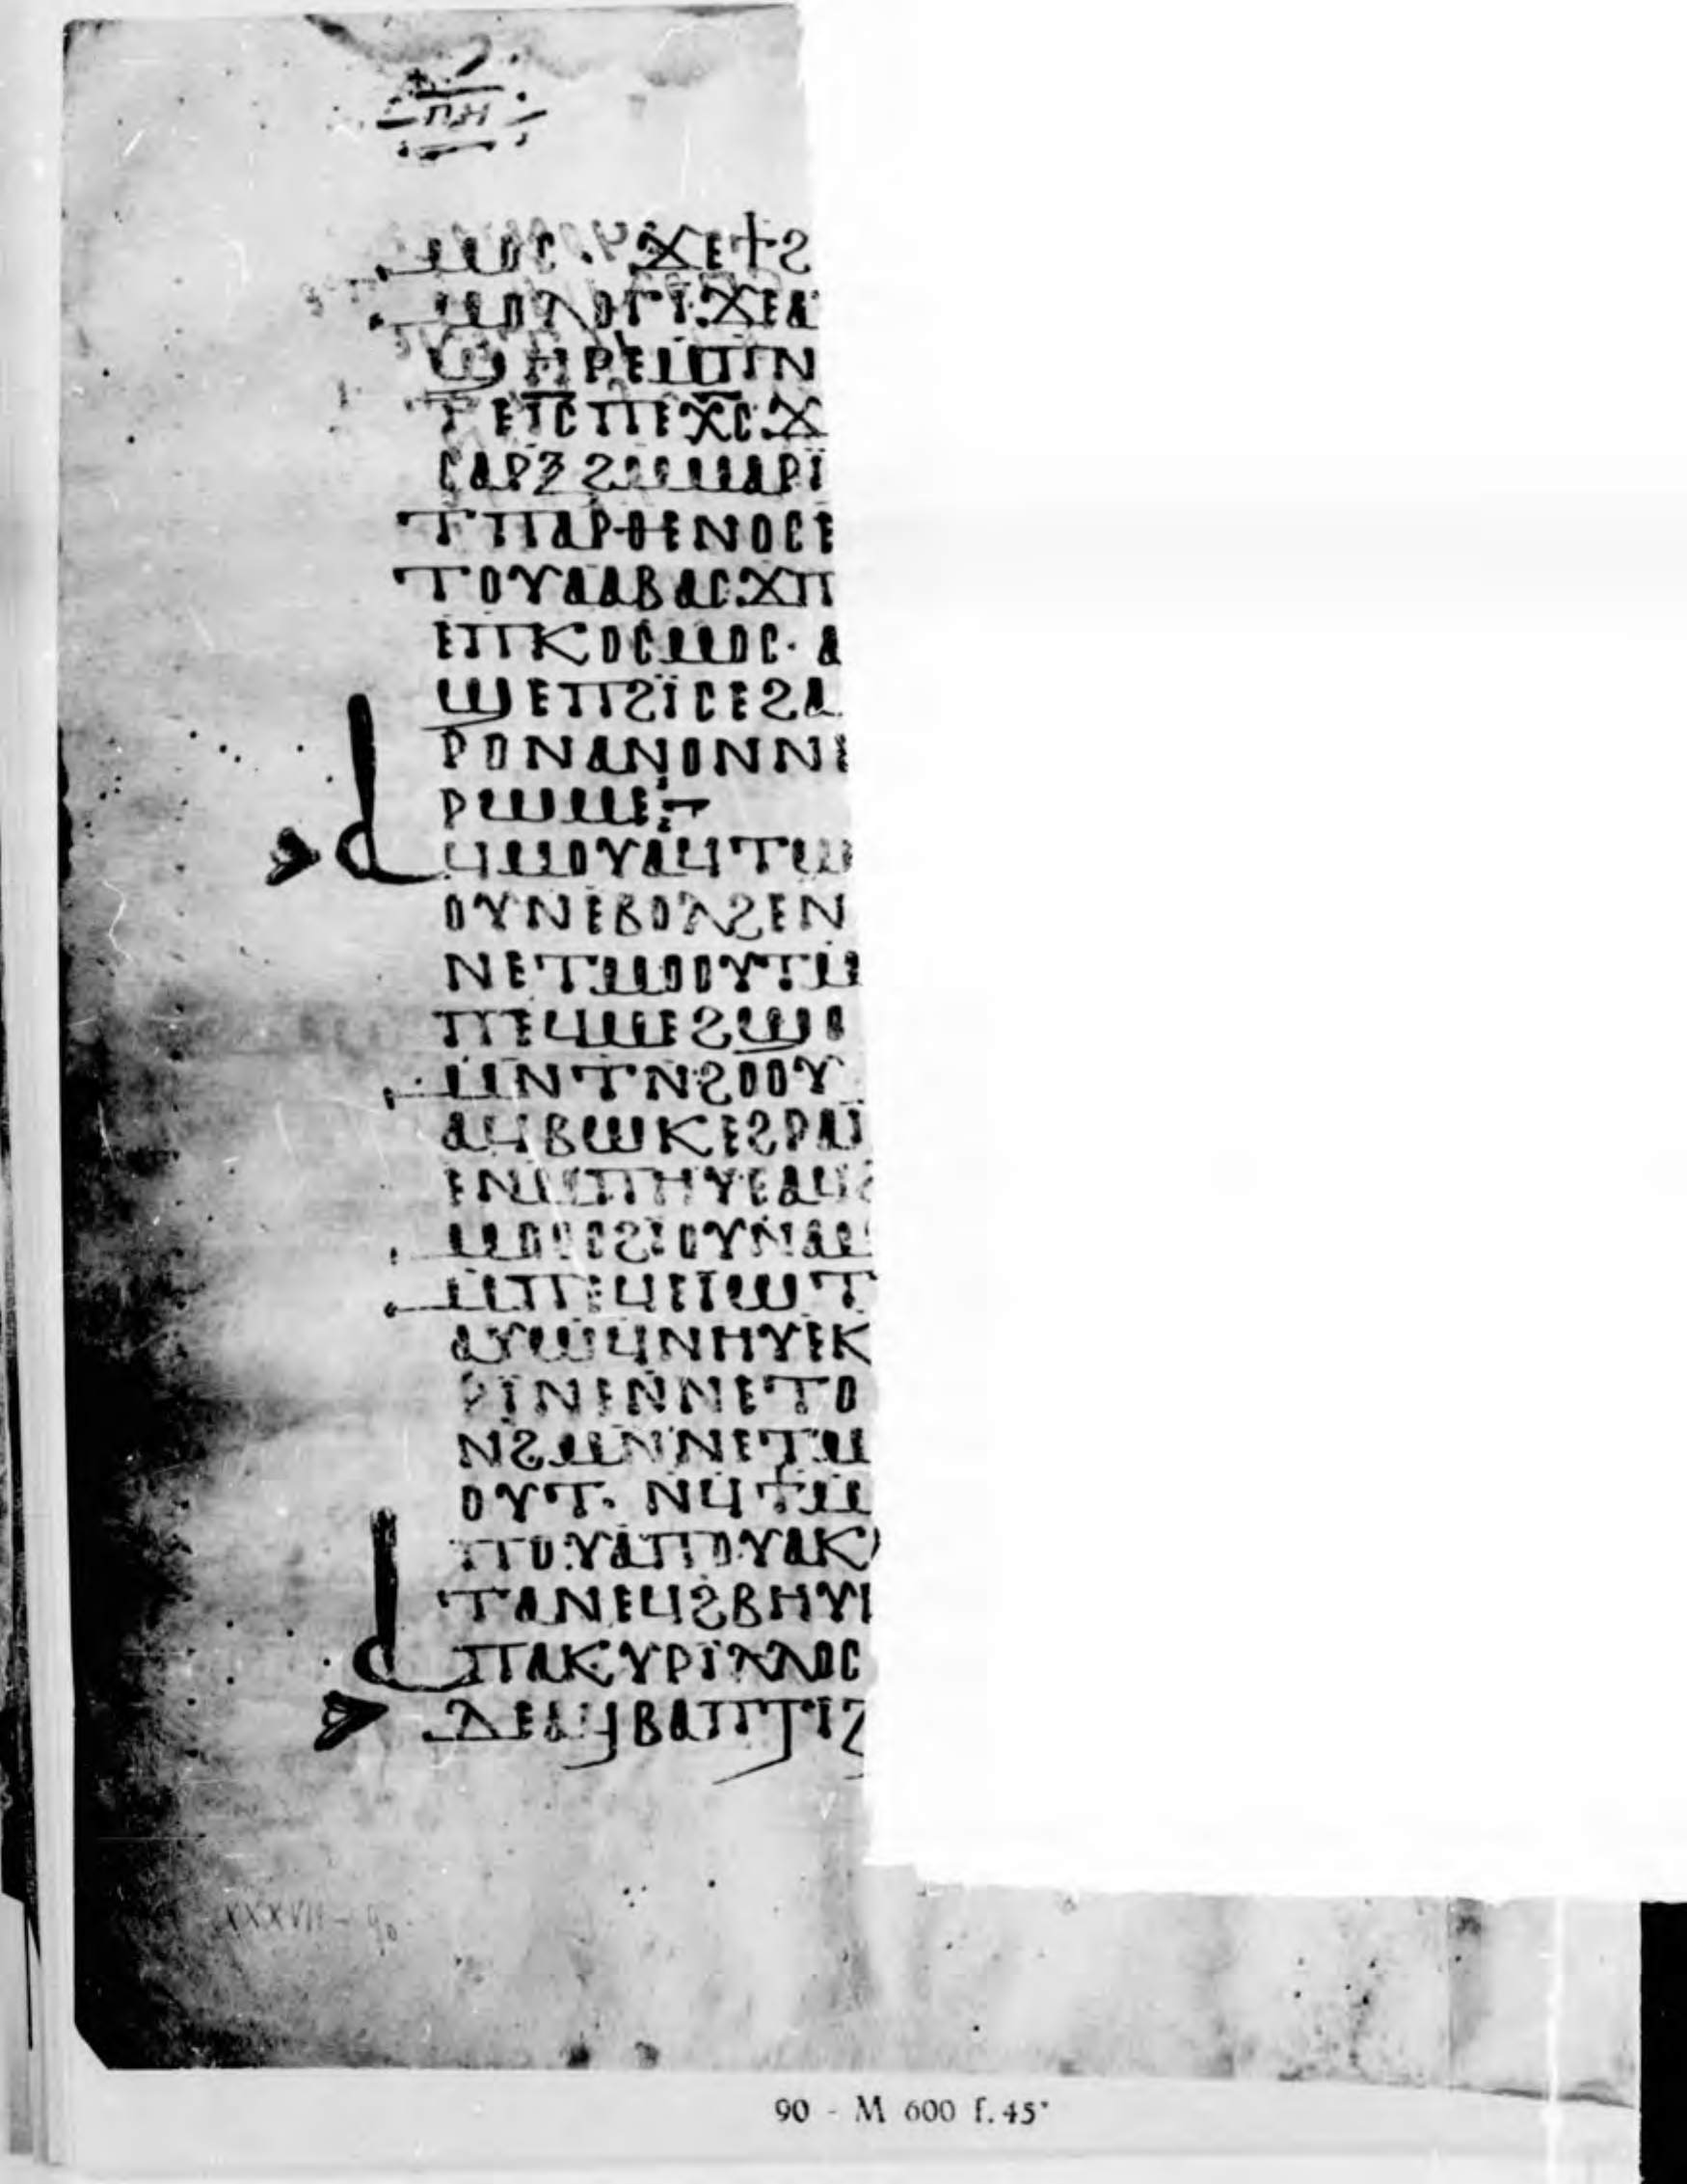 ⲡⲏ
ⲙⲟⲥ· ϫⲉϯϩ
ⲙⲟⲗⲟⲅⲓ·ϫⲉⲁ
ϣⲏⲣⲉⲙⲡⲛ
ⲧⲉⲓ̅ⲥ̅ⲡⲉⲭ̅ⲥ̅·ϫ
ⲥⲁⲣⲝϩⲙⲙⲁⲣⲓ̈
ⲧⲡⲁⲣⲑⲉⲛⲟⲥⲉ
ⲧⲟⲩⲁⲁⲃⲁⲥϫⲡ
ⲉⲡⲕⲟⲥⲙⲟⲥ· ⲁ
ϣⲉⲡϩⲓ̈ⲥⲉϩⲁ
ⲣⲟⲛⲁⲛⲟⲛⲛⲉ
ⲣⲱⲙⲉ
ⲁϥⲙⲟⲩⲁϥⲧⲱ
ⲟⲩⲛⲉⲃⲟⲗϩⲉⲛ
ⲛⲉⲧⲙⲟⲟⲩⲧⲙ
ⲡⲉϥⲙⲉϩϣⲟ
ⲙⲛⲧⲛϩⲟⲟⲩ
ⲁϥⲃⲱⲕⲉϩⲣⲁⲓ̈
ⲉⲛⲙⲡⲏⲩⲉⲁϥϩ
ⲙⲟⲟⲥϩⲓⲟⲩⲛⲁⲙ
ⲙⲡⲉϥⲉⲓⲱⲧ
ⲁⲩⲱϥⲛⲏⲩⲉⲕ
ⲣⲓ̈ⲛⲉⲛⲛⲉⲧⲟ
ⲛϩⲙⲛⲛⲉⲧⲙ
ⲟⲩⲧ· ⲛϥϯⲙ
ⲡⲟⲩⲁⲡⲟⲩⲁⲕ
ⲧⲁⲛⲉϥϩⲃⲏⲩⲉ
ⲁⲡⲁⲕⲩⲣⲓ̈ⲗⲗⲟⲥ
ⲇⲉⲁϥⲃⲁⲡⲧⲓⲍ
XXXVII - 90
90 - M 600 f. 45ᵛ